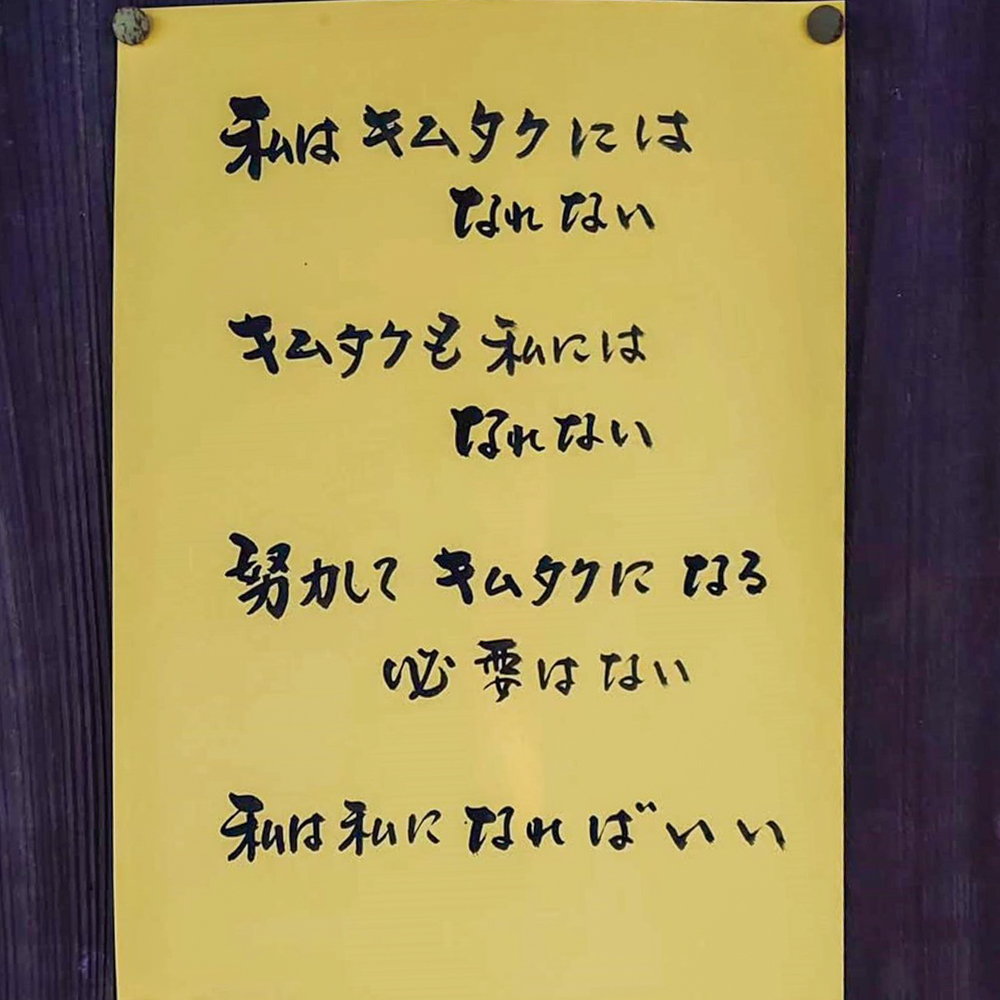 私はキムタクには
なれない
キムタクも私には
なれない
努力してキムタクになる
必要はない
私は私になればいい